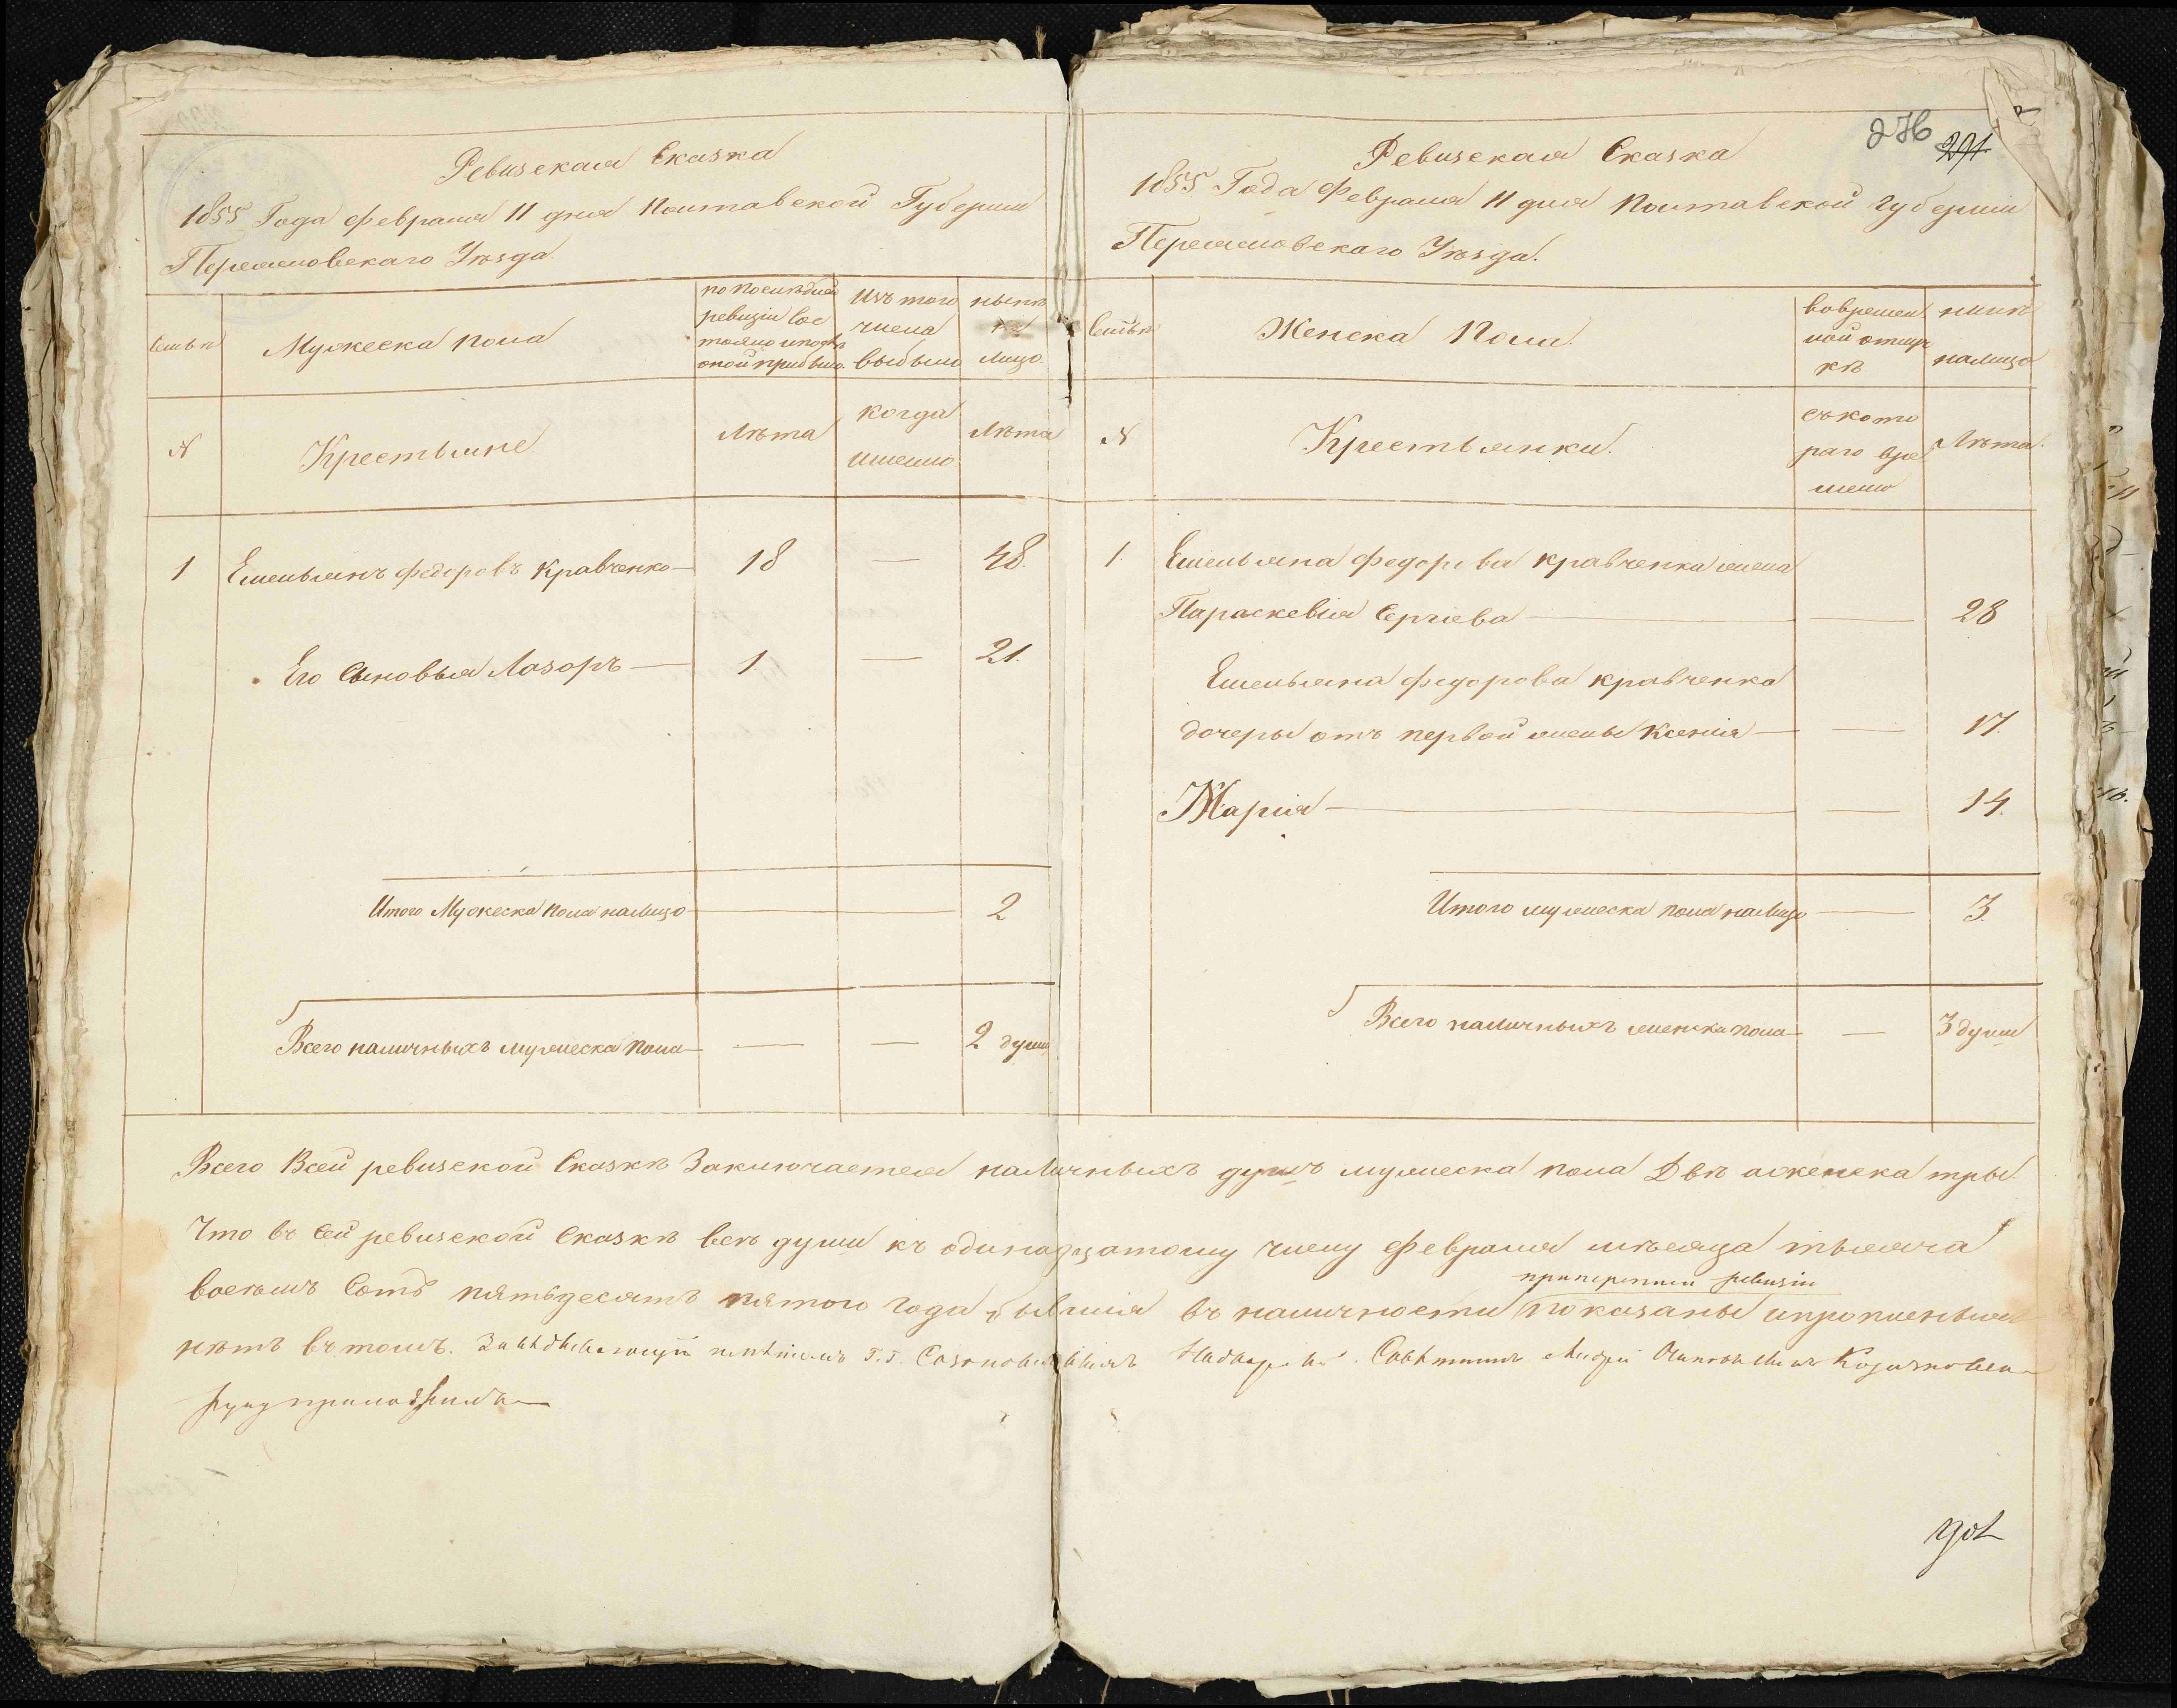 Ревизская Сказка
1855 Года февраля 11 дня Полтавской Губернии
Переясловскаго Уѣзда.
Семьи
Мужеска пола
по последней
ревизіи сос
тояло и после
оной прибыло
Изъ того
числа
выбыло
нынѣ
на
лицо
N
Крестьяне
Лѣта
когда
имянно
Лѣта
1
Емельянъ федоровъ Кравченко
18
48.
Его Сыновья Лазоръ
1
21.
Итого Мужеска пола налицо
2
Всего наличныхъ мужеска пола
2 души
276
291
Ревизская Сказка
1855 Года февраля 11 дня Полтавской Губернии
Переясловскаго Уѣзда.
Семьи
Женска Пола.
во времен
ной отлуч
кѣ
нинѣ
налицо
N
Крестьянки.
съ кото
раго вре
мени
Лѣта.
1.
Емельяна федорова кравченка жена
Параскевія Сергіева
28
Емельяна федорова кравченка
дочеры отъ первой жены Ксенія
17.
Марія
14.
Итого мужеска пола налицо
3.
Всего наличныхъ женска пола
3 души
Всего Всей ревизской Сказкѣ Заключается наличныхъ душъ мужеска пола Двѣ а женска тры.
Что въ сей ревизской Сказкѣ всѣ души къ одинадцатому числу февраля мѣсяца тысяча
восемъ Сотъ пятьдесятъ пятого года бывшія въ наличности показаны и прописныхъ
ревизіи
нѣтъ въ томъ. Завѣдывающій имѣніемъ Г.Г. Совѣтникъ Андрей
руку приложилъ